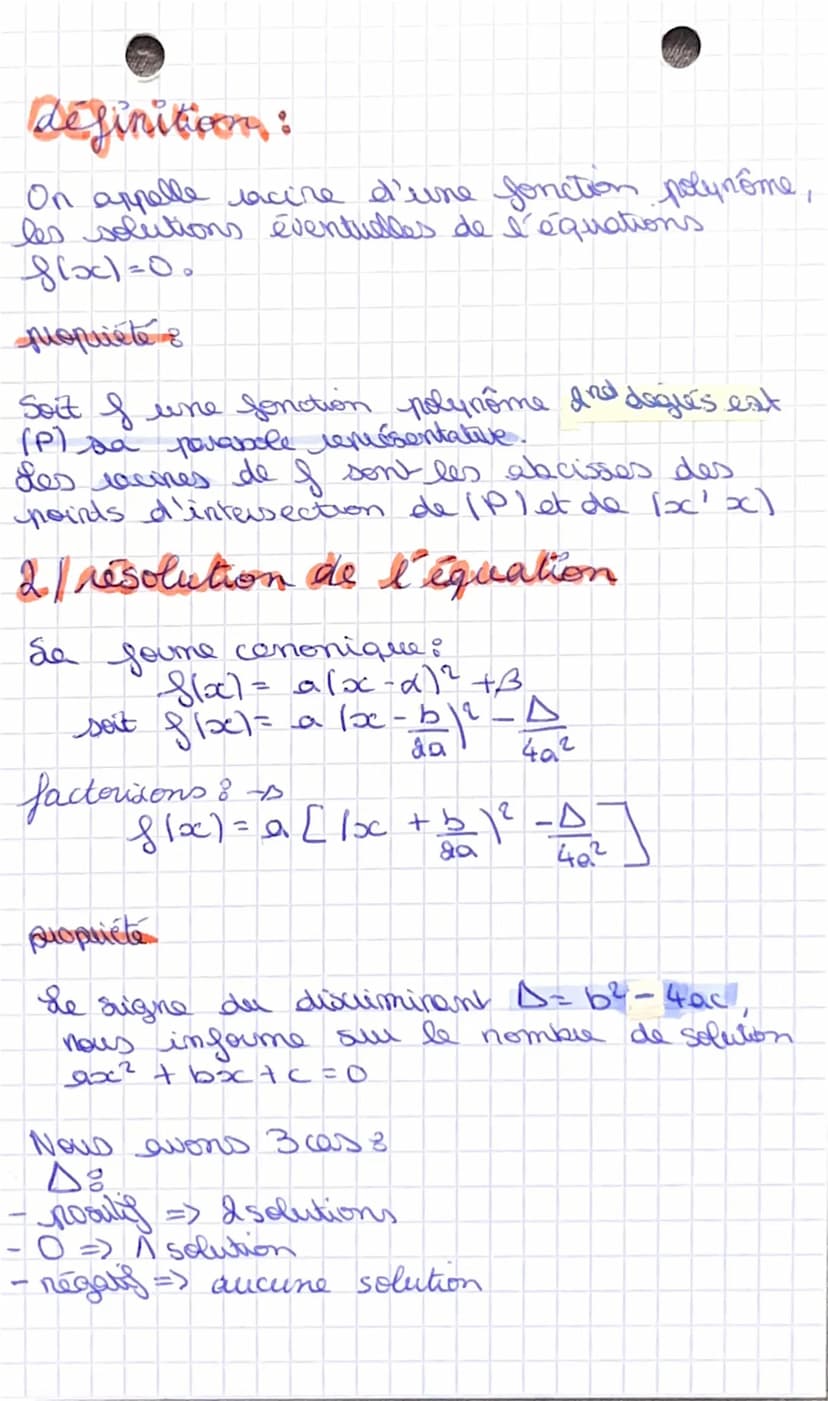 définition :
On appelle racine d'une fonction polynôme,
les solutions éventuelles de l'équations
f(x)=0.
propriété :
Soit f une fonction polynôme 2nd degrés est
(P) sa parabole représentative.
Les racines de f sont les abcisses des
points d'intersection de (P) et de (x' x)
2/ résolution de l'équation
La forme canonique :
f(x) = a(x - α)² + β
soit f(x) = a (x - b/2a)² - Δ/4a²
factorisons : →
f(x) = a [ (x + b/2a)² - Δ/4a² ]
propriété
Le signe du discriminant Δ = b² - 4ac,
nous informe sur le nombre de solution
ax² + bx + c = 0
Nous avons 3 cas :
Δ :
- positif => 2 solutions
- 0 => 1 solution
- négatif => aucune solution